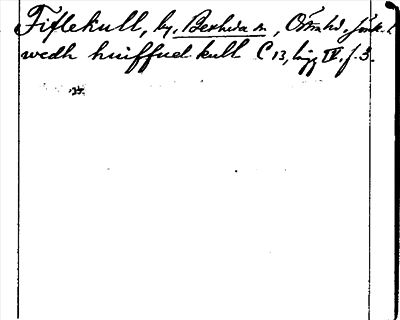 Fiflekull, by, Berhida sn, Östra hd.
wedh huiffuelkull C 13, lägg IV, f. 3.